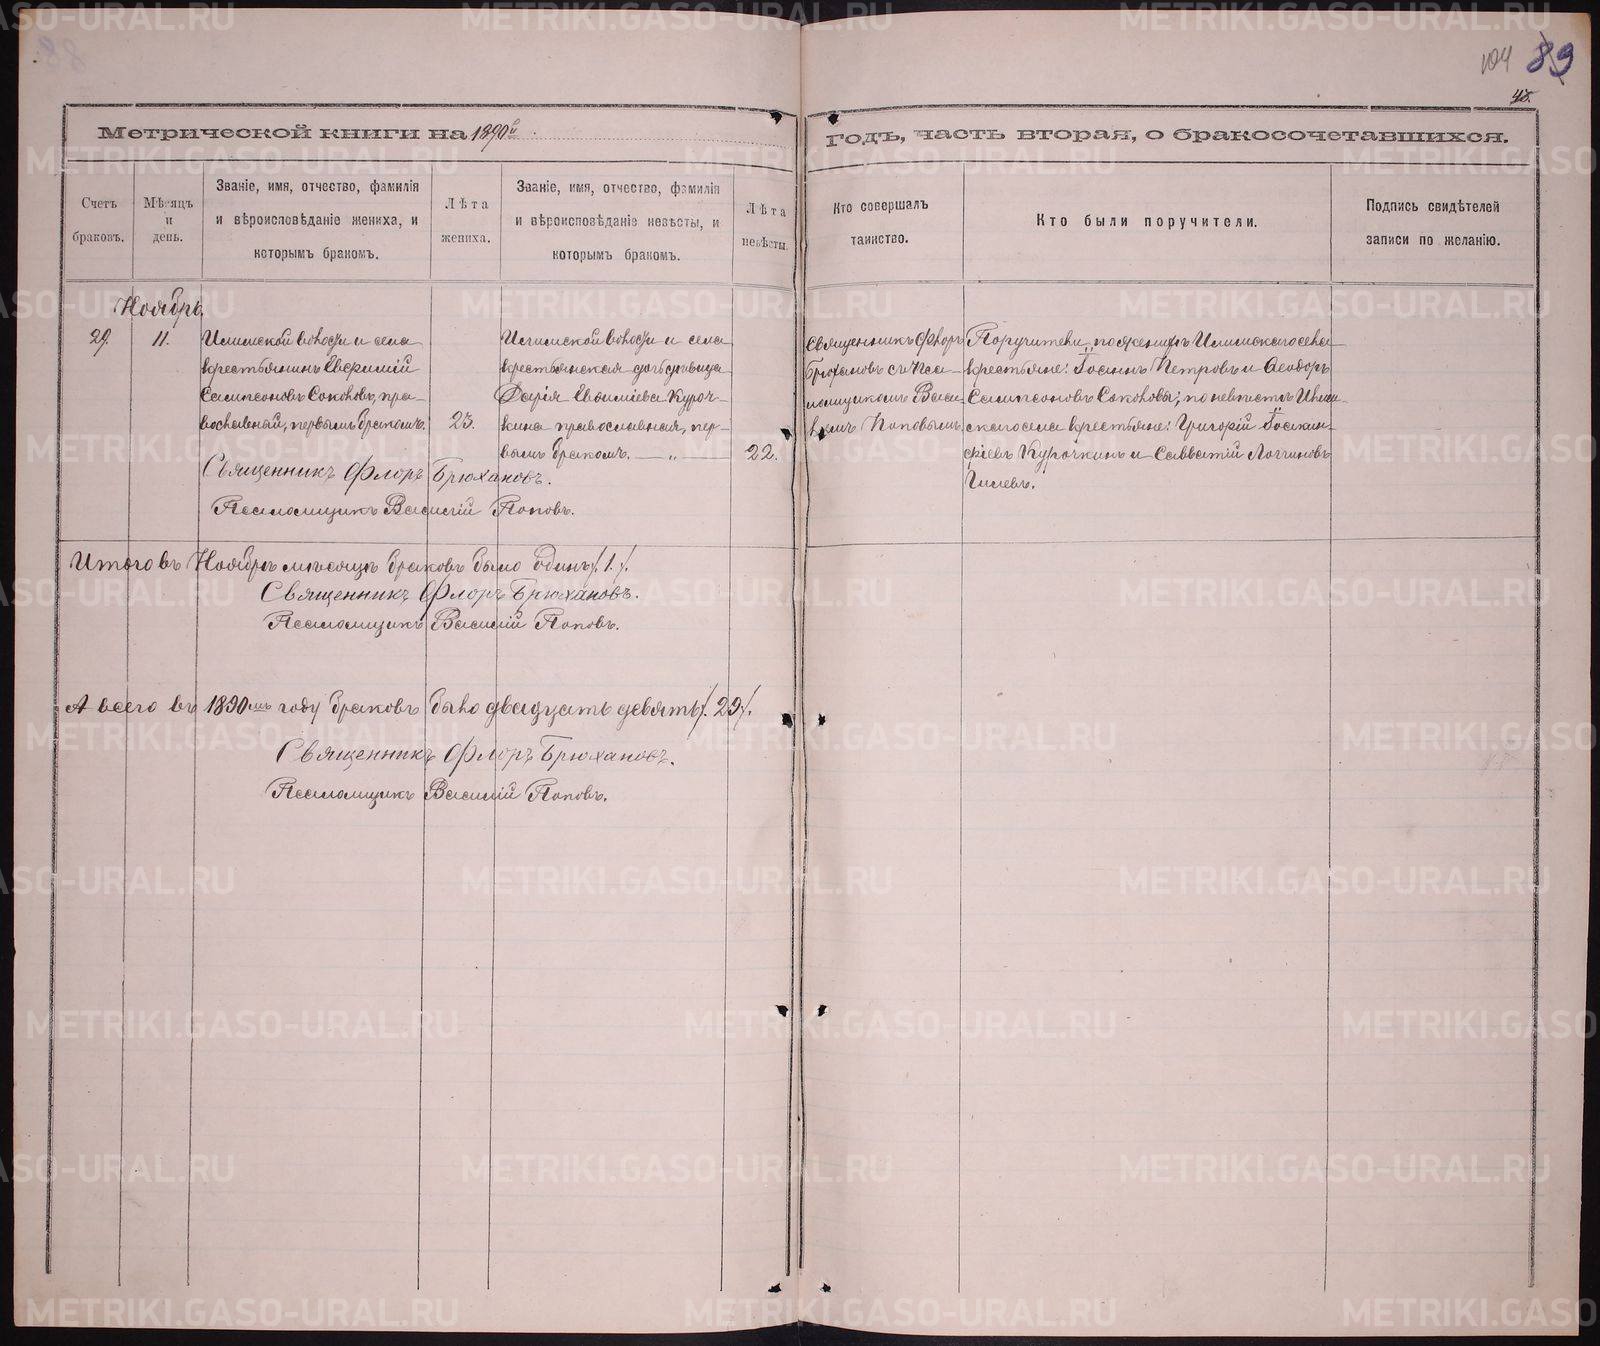 104 89
48.
Метрической книги на 1890й годъ, часть вторая, о бракосочетавшихся.
Счетъ браковъ.
Мѣсяцъ и день.
Званіе, имя, отчество, фамилія и вѣроисповѣданіе жениха, и которымъ бракомъ.
Лѣта жениха.
Званіе, имя, отчество, фамилія и вѣроисповѣданіе невѣсты, и которымъ бракомъ.
Лѣта невѣсты.
Кто совершалъ таинство.
Кто были поручители.
Подпись свидѣтелей записи по желанію.
Ноябрь
29.
11.
Илимской волости и села
крестьянинъ Евфимій
Сампсоновъ Соколовъ, пра-
вославный, первымъ бракомъ.
23.
Илимской волости и села
крестьянская дочь дѣвица
Дарія Евфиміева Куроч-
кина православная, пер-
вымъ бракомъ. — „ —
22.
Священникъ Флоръ
Брюхановъ съ Пса-
ломщикомъ Васи-
ліемъ Поповымъ
Поручители по женихѣ Илимскаго села
крестьяне: Іоаннъ Петровъ и Ѳеодоръ
Сампсоновъ Соколовы; по невѣстѣ Илим-
скаго села крестьяне: Григорій Іоакин-
фіевъ Курочкинъ и Савватій Логгиновъ
Гилевъ.
Священникъ Флоръ Брюхановъ.
Псаломщикъ Василій Поповъ.
Итого въ Ноябрѣ мѣсяцѣ браковъ было одинъ /.1./.
Священникъ Флоръ Брюхановъ.
Псаломщикъ Василій Поповъ.
А всего въ 1890мъ году браковъ было двадцать девять /.29/.
Священникъ Флоръ Брюхановъ.
Псаломщикъ Василій Поповъ.
METRIKI.GASO-URAL.RU